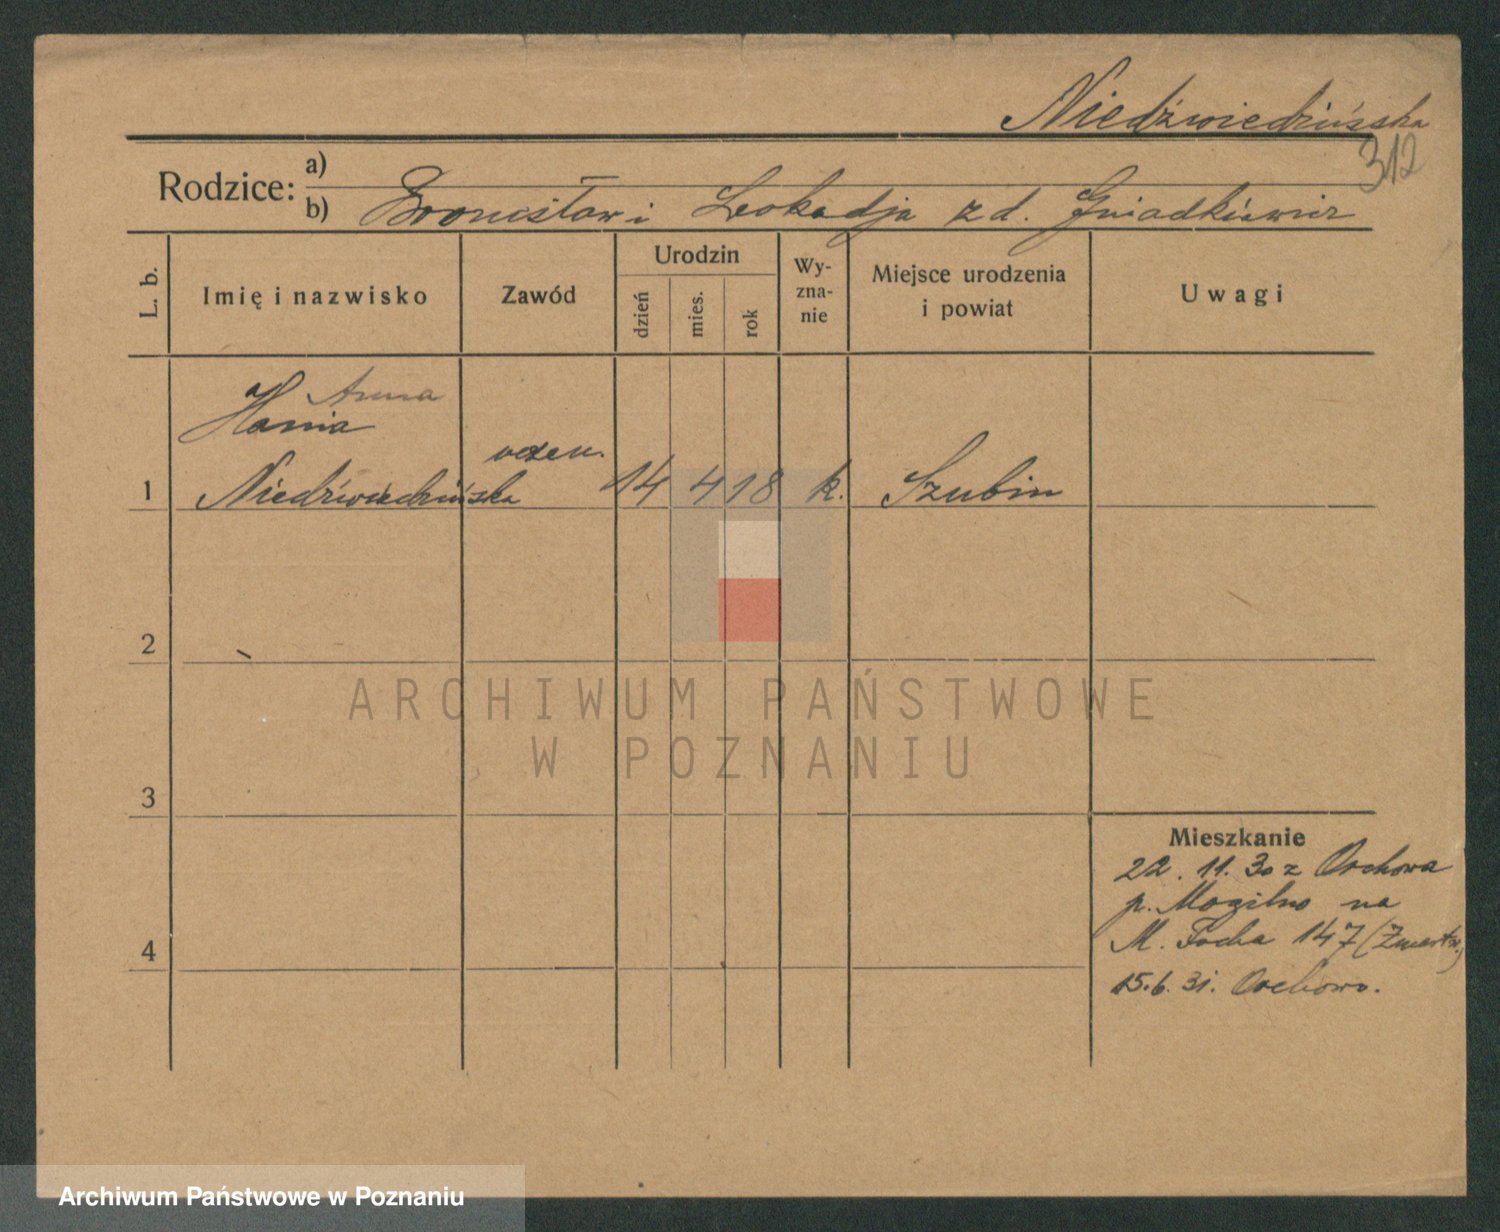 Niedźwiedzińska
312
Rodzice:
a)
b) Bronisław i Leokadja z d. Gniadkiewicz
L. b.
Imię i nazwisko
Zawód
Urodzin
dzień
mies.
rok
Wy-
zna-
nie
Miejsce urodzenia
i powiat
Uwagi
Anna
Hania
1 Niedźwiedzińska uczen. 14 4 18 k. Szubin
2
3
4
Mieszkanie
22. 11. 30 z Orchowa
p. Mogilno na
M. Focha 147
15. 6. 31. Orchowo.
ARCHIWUM PAŃSTWOWE
W POZNANIU
Archiwum Państwowe w Poznaniu